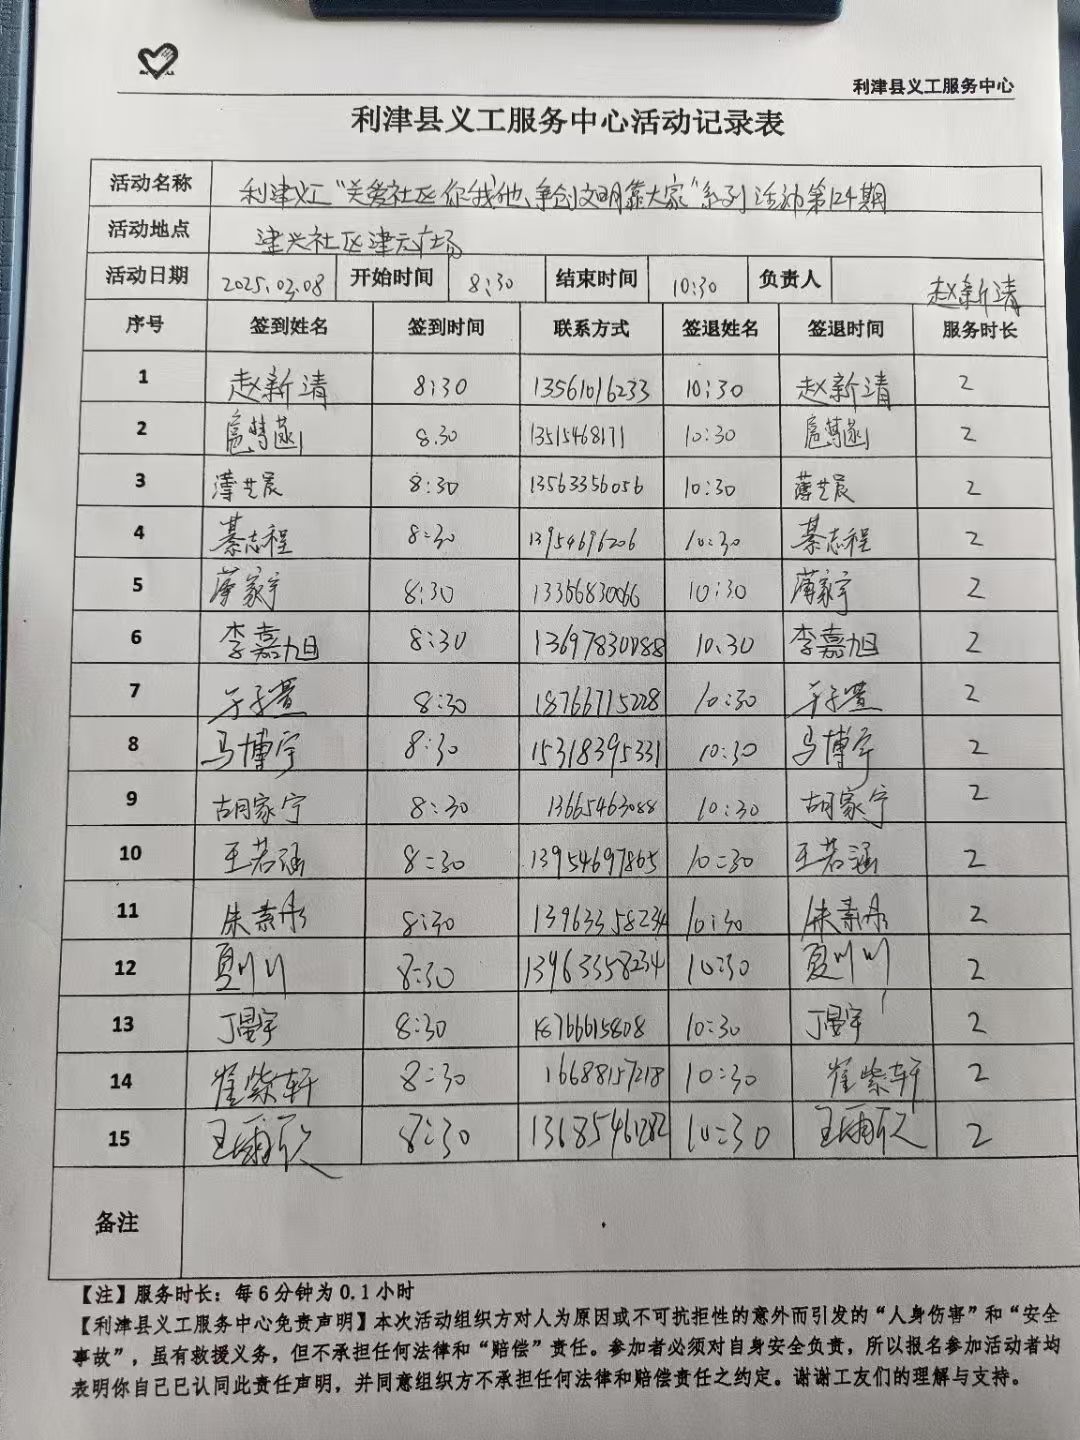 利津县义工服务中心
利津县义工服务中心活动记录表
活动名称 利津义工“关爱社区你我他、争创文明靠大家”系列活动第124期
活动地点 建兴社区津元广场
活动日期 2025.03.08 开始时间 8:30 结束时间 10:30 负责人 赵新清
序号 签到姓名 签到时间 联系方式 签退姓名 签退时间 服务时长
1 赵新清 8:30 13561016233 10:30 赵新清 2
2 8.30 13515468171 10:30 2
3 薄艺晨 8:30 13563356056 10:30 薄艺晨 2
4 綦志程 8:30 13954696206 10:30 綦志程 2
5 薄家宇 8:30 13356830066 10:30 薄家宇 2
6 李嘉旭 8:30 13697830188 10:30 李嘉旭 2
7 于子萱 8:30 18766715228 10:30 于子萱 2
8 马博宇 8:30 15318395331 10:30 马博宇 2
9 胡家宁 8:30 13665463088 10:30 胡家宁 2
10 王若涵 8:30 13954697865 10:30 王若涵 2
11 朱素彤 8:30 13963358234 10:30 朱素彤 2
12 夏川川 8:30 13963358234 10:30 夏川川 2
13 丁曼宇 8:30 18766615808 10:30 丁曼宇 2
14 崔紫轩 8:30 16688157218 10:30 崔紫轩 2
15 8:30 13685461282 10:30 2
备注
【注】服务时长：每6分钟为0.1小时
【利津县义工服务中心免责声明】本次活动组织方对人为原因或不可抗拒性的意外而引发的“人身伤害”和“安全
事故”，虽有救援义务，但不承担任何法律和“赔偿”责任。参加者必须对自身安全负责，所以报名参加活动者均
表明你自己已认同此责任声明，并同意组织方不承担任何法律和赔偿责任之约定。谢谢工友们的理解与支持。